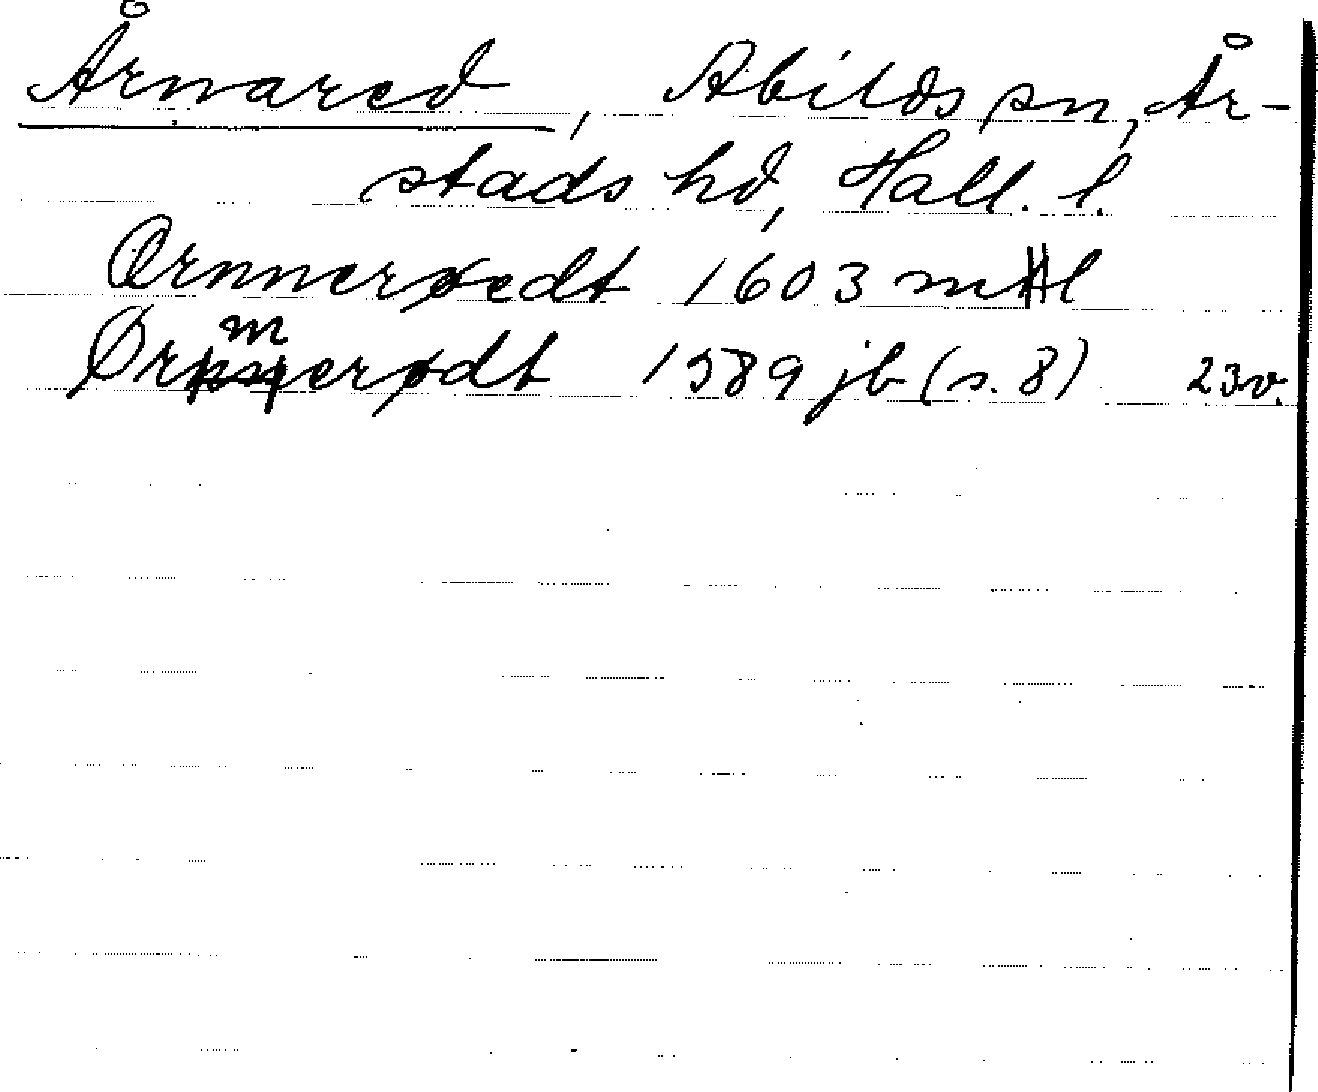 Årnared, Abilds sn, År-
stads hd, Hall. l.
Ørnnerøedt 1603 mHl
Ørmerødt 1589 jb (s. 8) 23v.